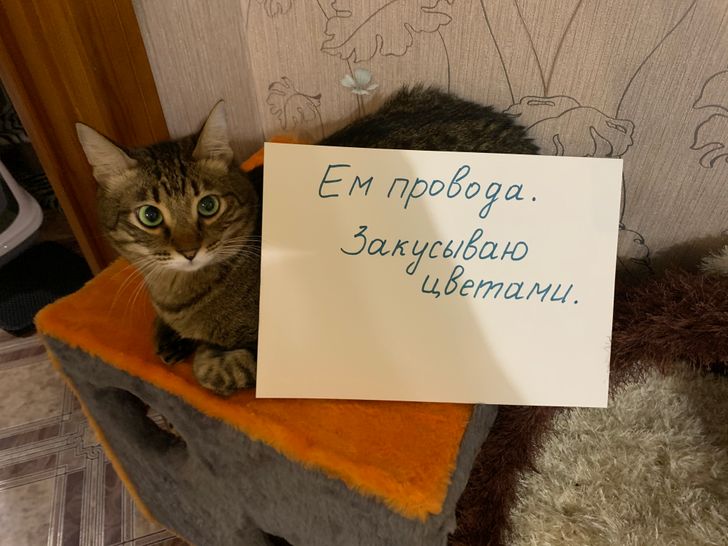 Ем провода.
Закусываю
цветами.